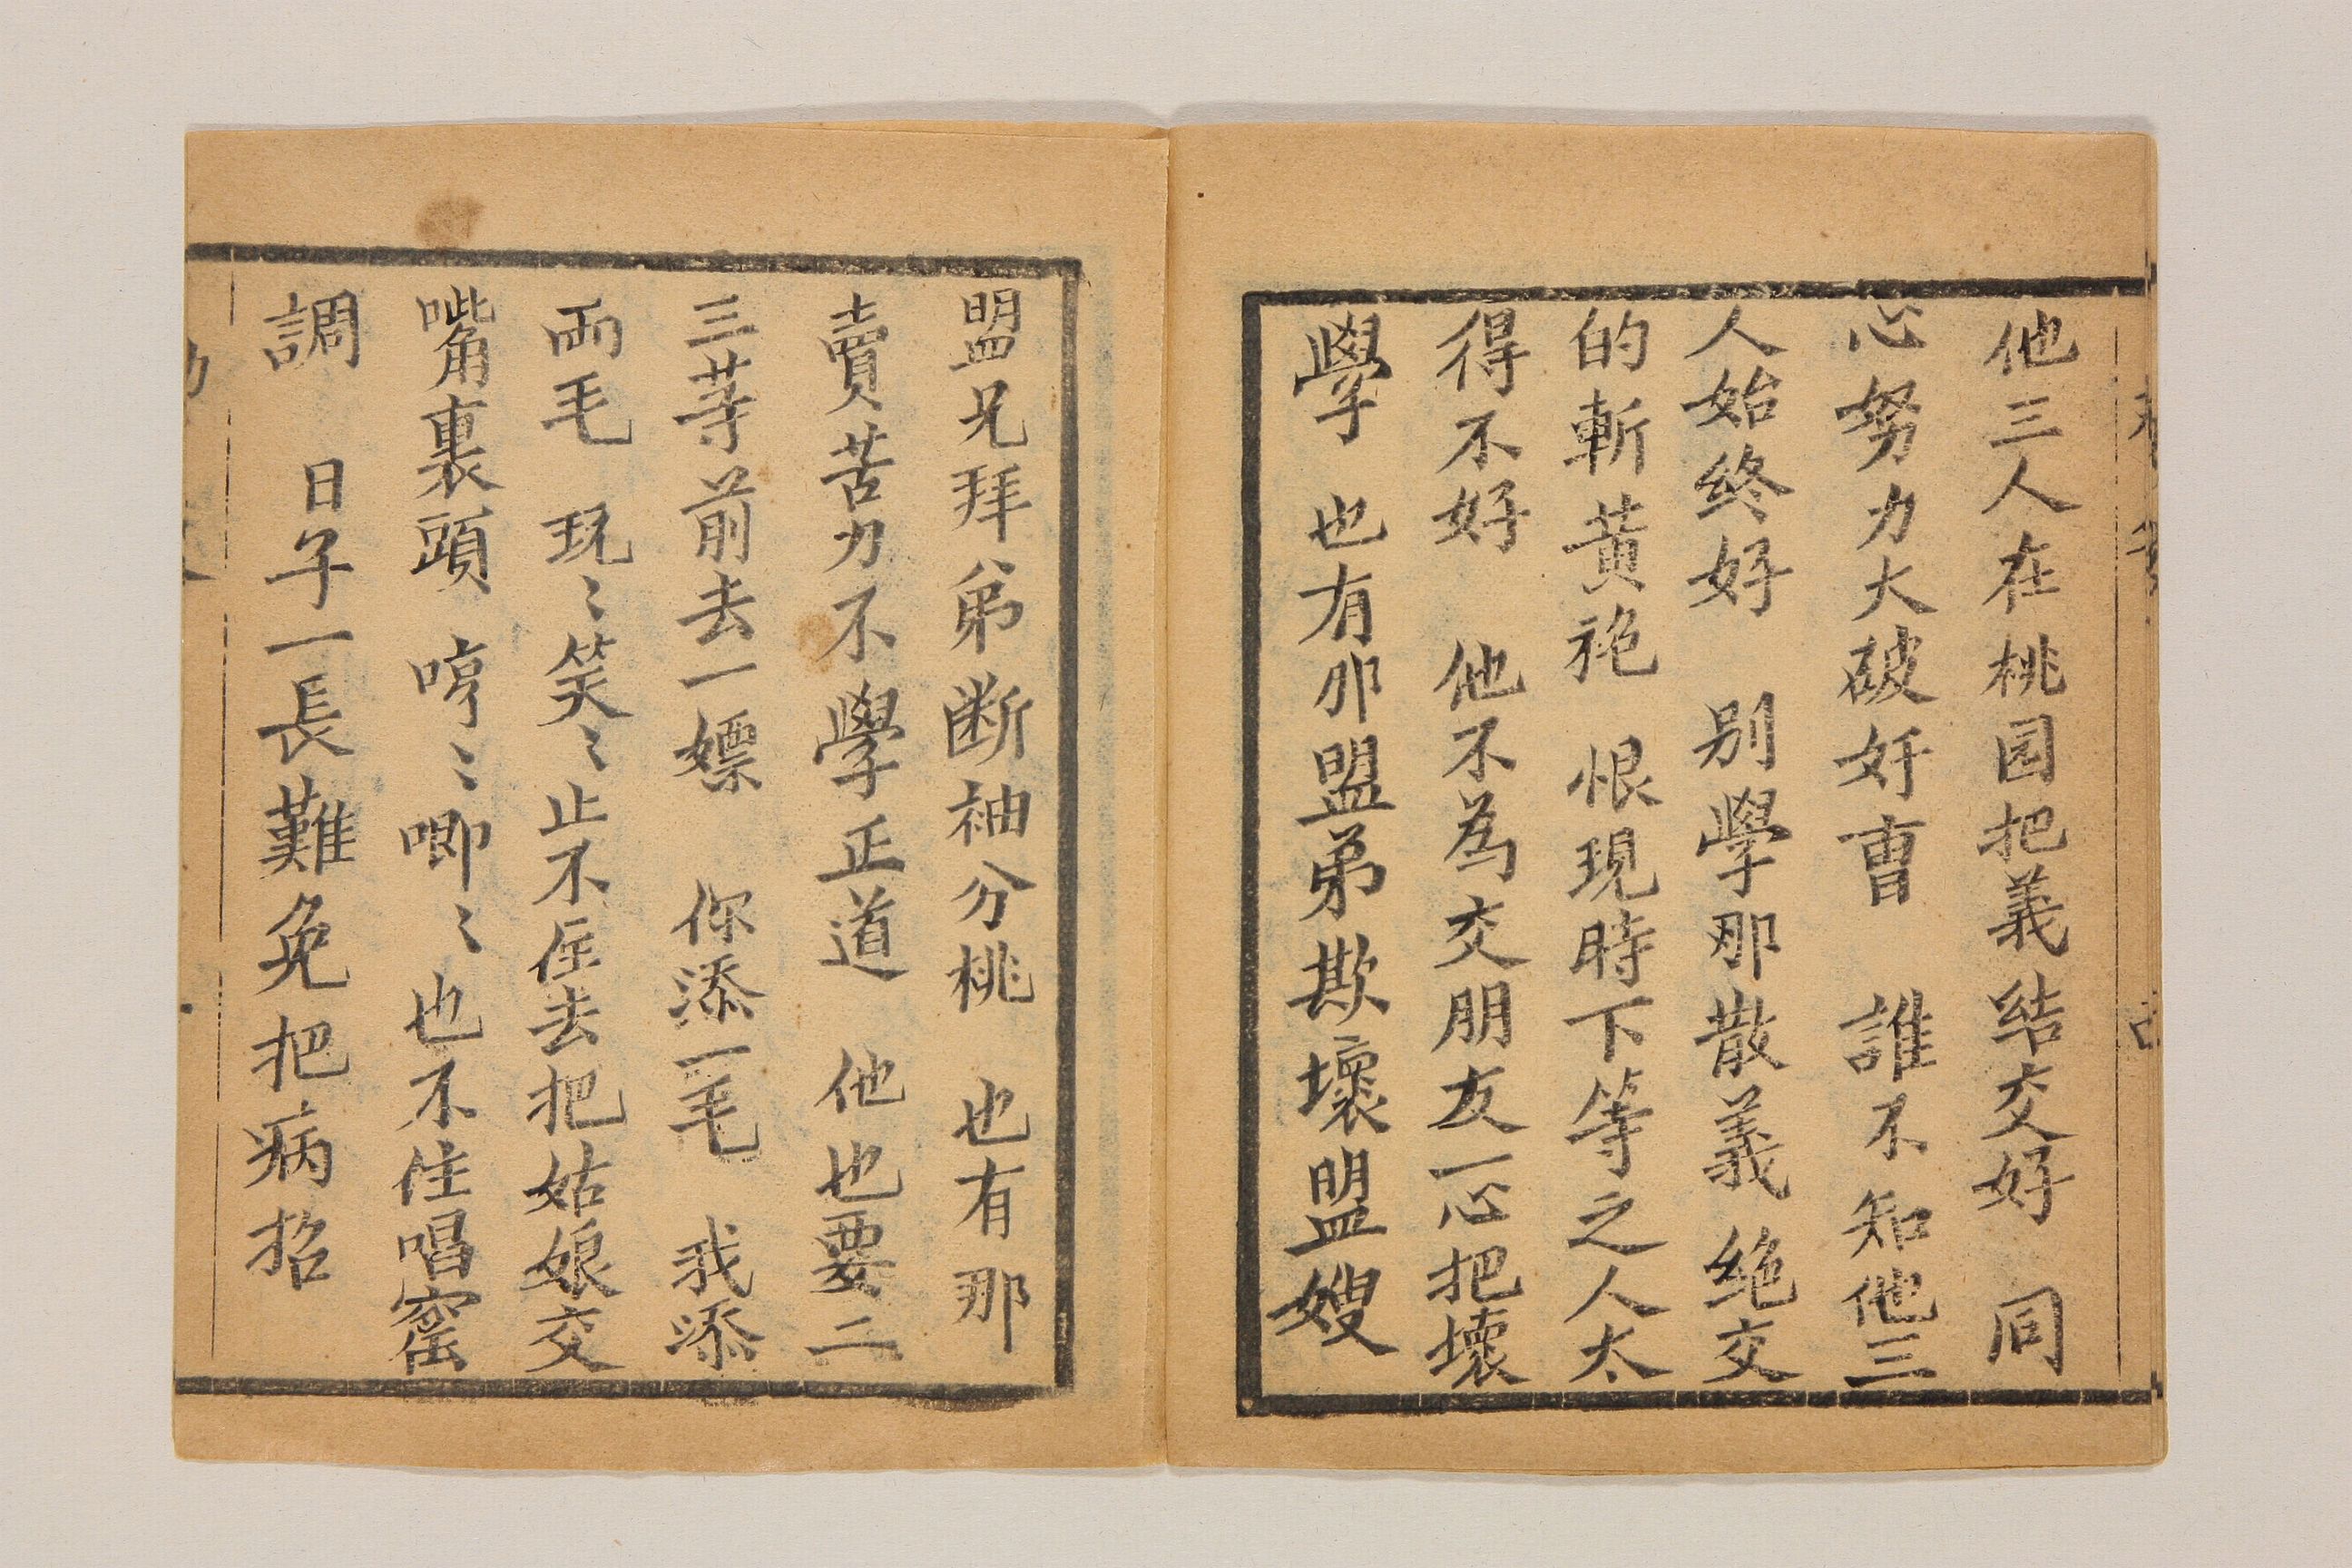 他三人在桃园把義結交好　同
心努力大破奸曹　誰不知他三
人始终好　别學那散義绝交
的斬黄袍　恨現時下等之人太
得不好　他不為交朋友一心把壞
學　也有那盟弟欺壞盟嫂
盟兄拜弟断袖分桃　也有那
賣苦力不學正道　他也要二
三等前去一嫖　你添一毛　我添
両毛　現〻笑〻止不住去把姑娘交
嘴裏頭　哼〻唧〻也不住唱窑
調　日子一長難免把病招